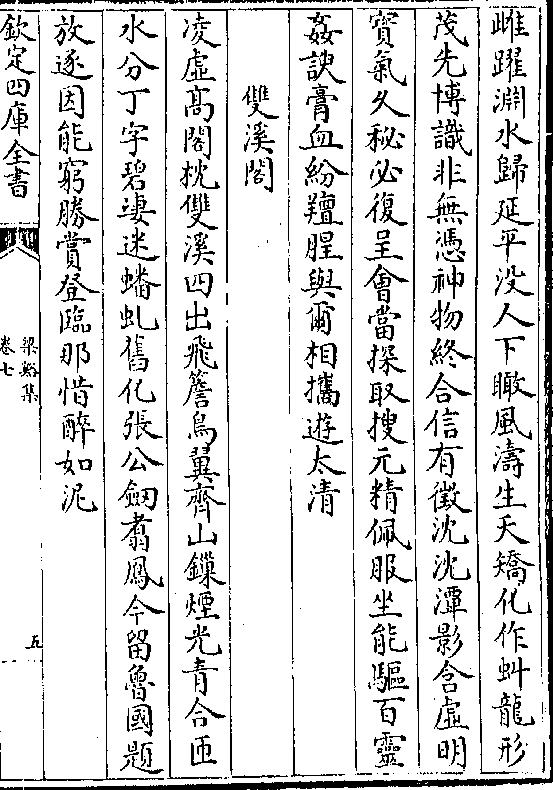 雌躍淵水歸延平没人下瞰風濤生夭矯化作虯龍形
茂先博識非無憑神物終合信有徵沈沈潭影含虛明
寳氣久秘必復呈會當探取搜元精佩服坐能驅百靈
姦諛膏血紛羶腥與爾相攜遊太清
雙溪閣
凌虛髙閣枕雙溪四出飛簷鳥翼齊山鏁煙光青合匝
水分丁字碧凄迷蟠虬舊化張公劔翥鳳今留魯國題
放逐因能窮勝賞登臨那惜醉如泥
欽定四庫全書
梁谿集
卷七
五